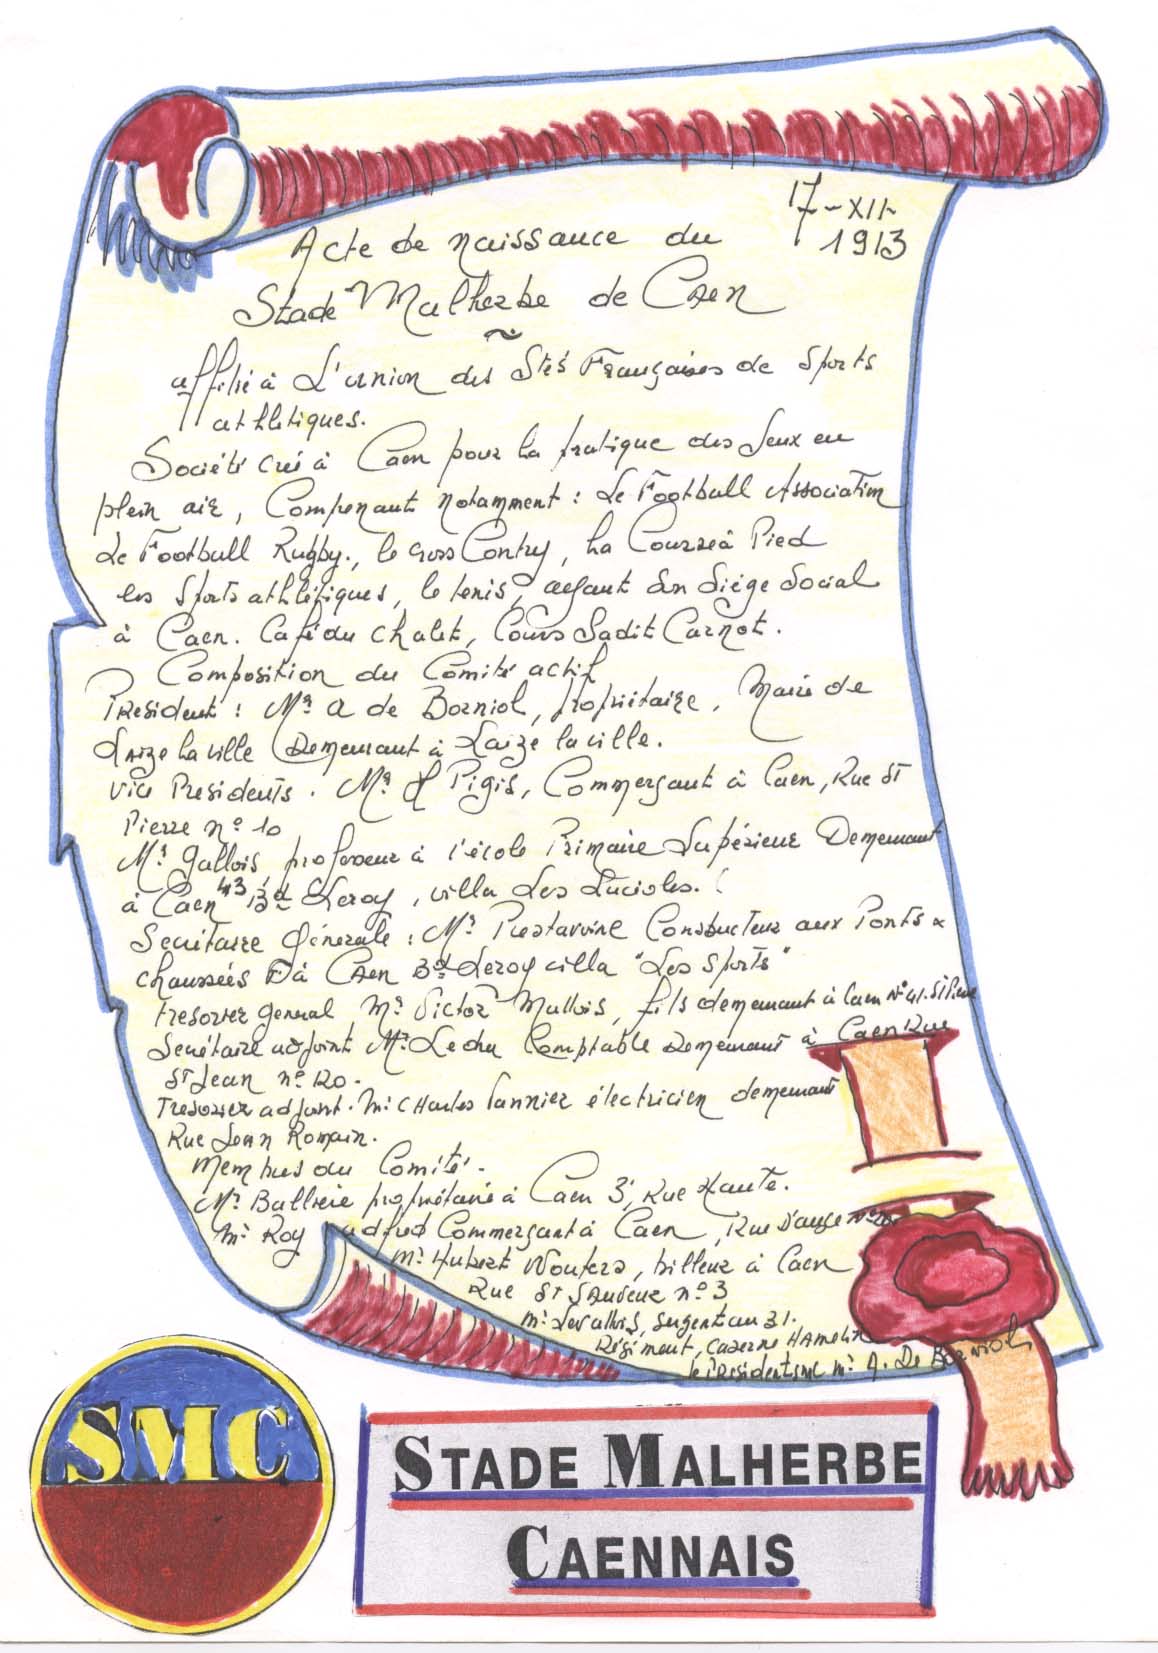 17-XII-
1913
Acte de naissance du
Stade Malherbe de Caen
affilié à L'union des Stés Françaises de Sports
athlétiques.
Société créé à Caen pour la pratique des Jeux en
plein air, Comprenant Notamment : Le Football Association
Le Football Rugby., le cross Contry, La Course à Pied
les Sports athlétiques, le tenis, ayant Son Siége Social
à Caen. Café du Chalet, Cours Sadit Carnot.
Composition du Comité actif
President : Mr A de Borniol, propriétaire, Maire de
Laize la ville Demeurant à Laize la ville.
Vice Presidents. Mr Pigis, Commerçant à Caen, Rue St
Pierre n° 10
Mr Gallois, professeur à l'école Primaire Supérieur Demeurant
à Caen 43 Bd Leroy, villa Les Lucioles.
Secrétaire Générale : Mr Constructeur aux Ponts &
chaussées à Caen Bd Leroy villa "Les Sports"
tresorier general Mr Victor Mullois, fils demeurant à Caen N° 41. St Pierre
Secrétaire adjoint Mr Lechu Comptable Demeurant à Caen Rue
St Jean n° 120.
Tresorier adjoint. Mr Charles Vannier électricien demeurant
Rue Jean Romain.
Membres du Comité.
Mr Ballière propriétaire à Caen 3, Rue Haute.
Mr Roy Commerçant à Caen, Rue D'auge N°
Mr Hubert Wouters, tailleur à Caen
Rue St Sauveur n° 3
Mr Levallois, sergent au 31.
Régiment, Caserne Hamelin
le President Mr A. De Borniol
SMC
STADE MALHERBE
CAENNAIS